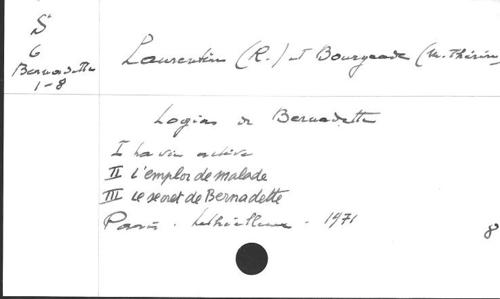 S
6
Bernadette
1-8
Laurentin (R.) et Bourgeade (M. Thérèse
Logia de Bernadette
I La vie active
II L'emploi de malade
III Le secret de Bernadette
Paris. Lethielleux. 1971
8